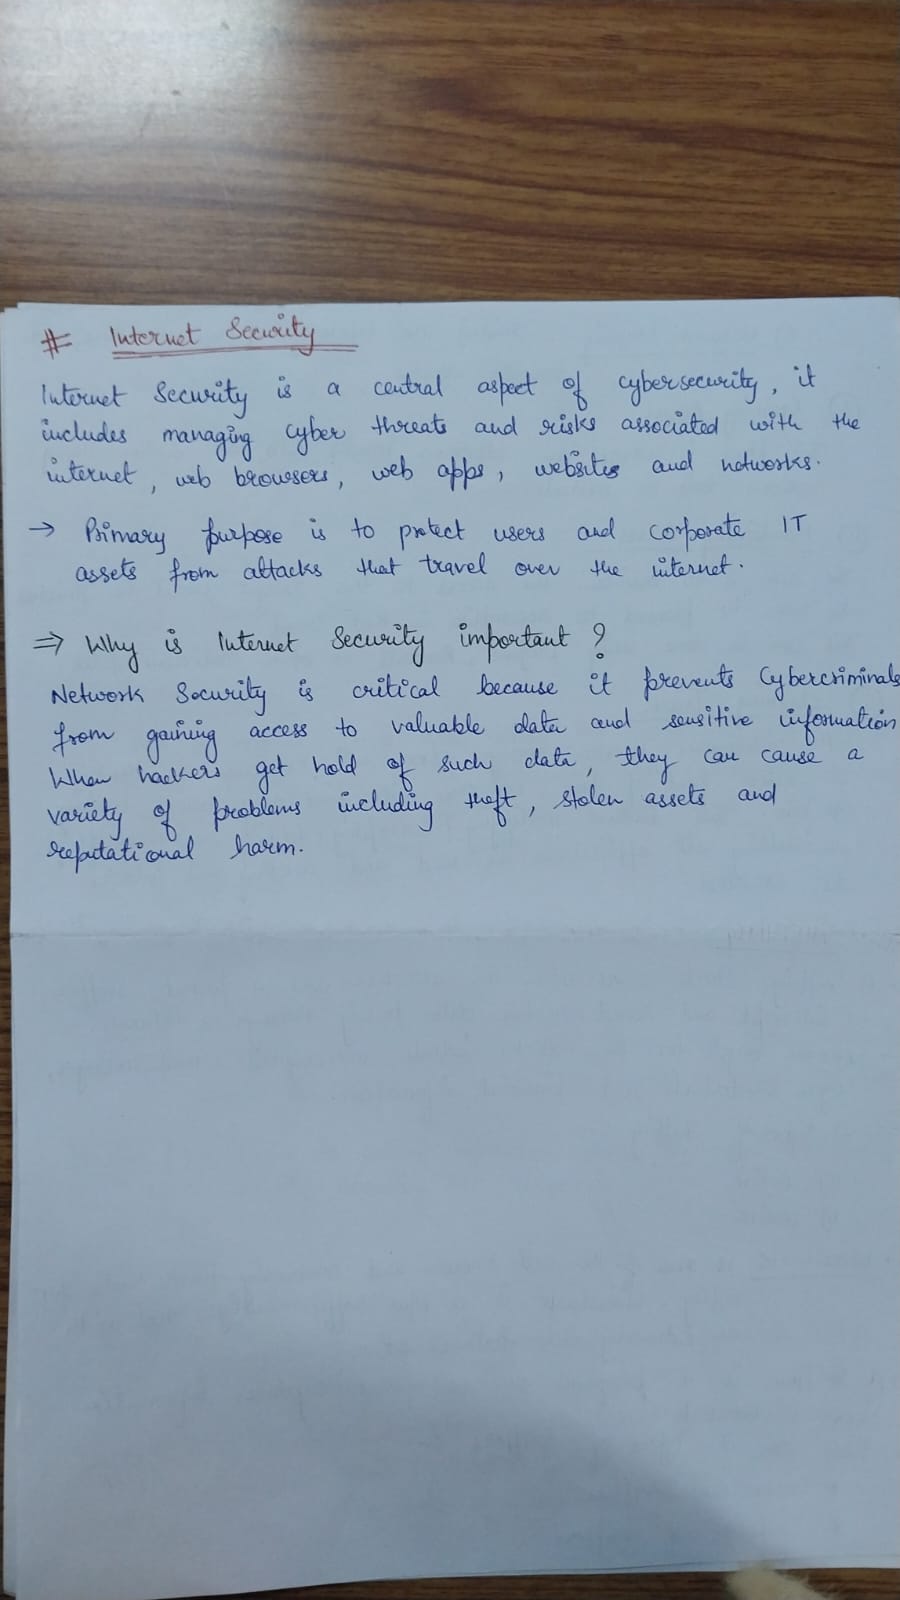 # Internet Security
Internet Security is a central aspect of cybersecurity, it
includes managing cyber threats and risks associated with the
internet, web browsers, web apps, websites and networks.
→ Primary purpose is to protect users and corporate IT
assets from attacks that travel over the internet.
⇒ Why is Internet Security important?
Network Security is critical because it prevents Cybercriminals
from gaining access to valuable data and sensitive information
When hackers get hold of such data, they can cause a
variety of problems including theft, stolen assets and
reputational harm.